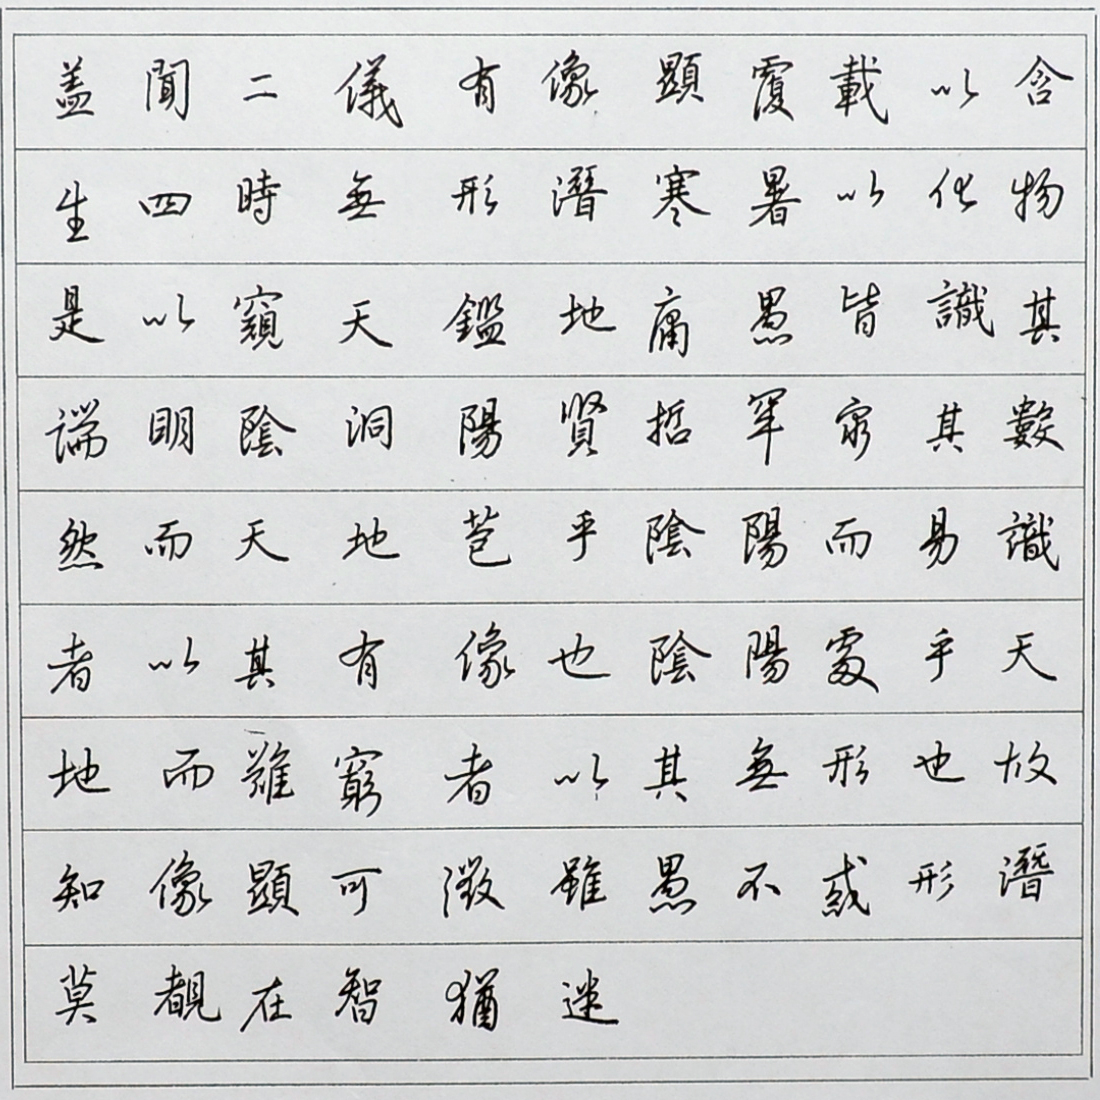 蓋聞二儀有像顯覆載以含
生四時無形潛寒暑以化物
是以窺天鑑地庸愚皆識其
端明陰洞陽賢哲罕窮其數
然而天地苞乎陰陽而易識
者以其有像也陰陽處乎天
地而難窮者以其無形也故
知像顯可徵雖愚不惑形潛
莫覩在智猶迷